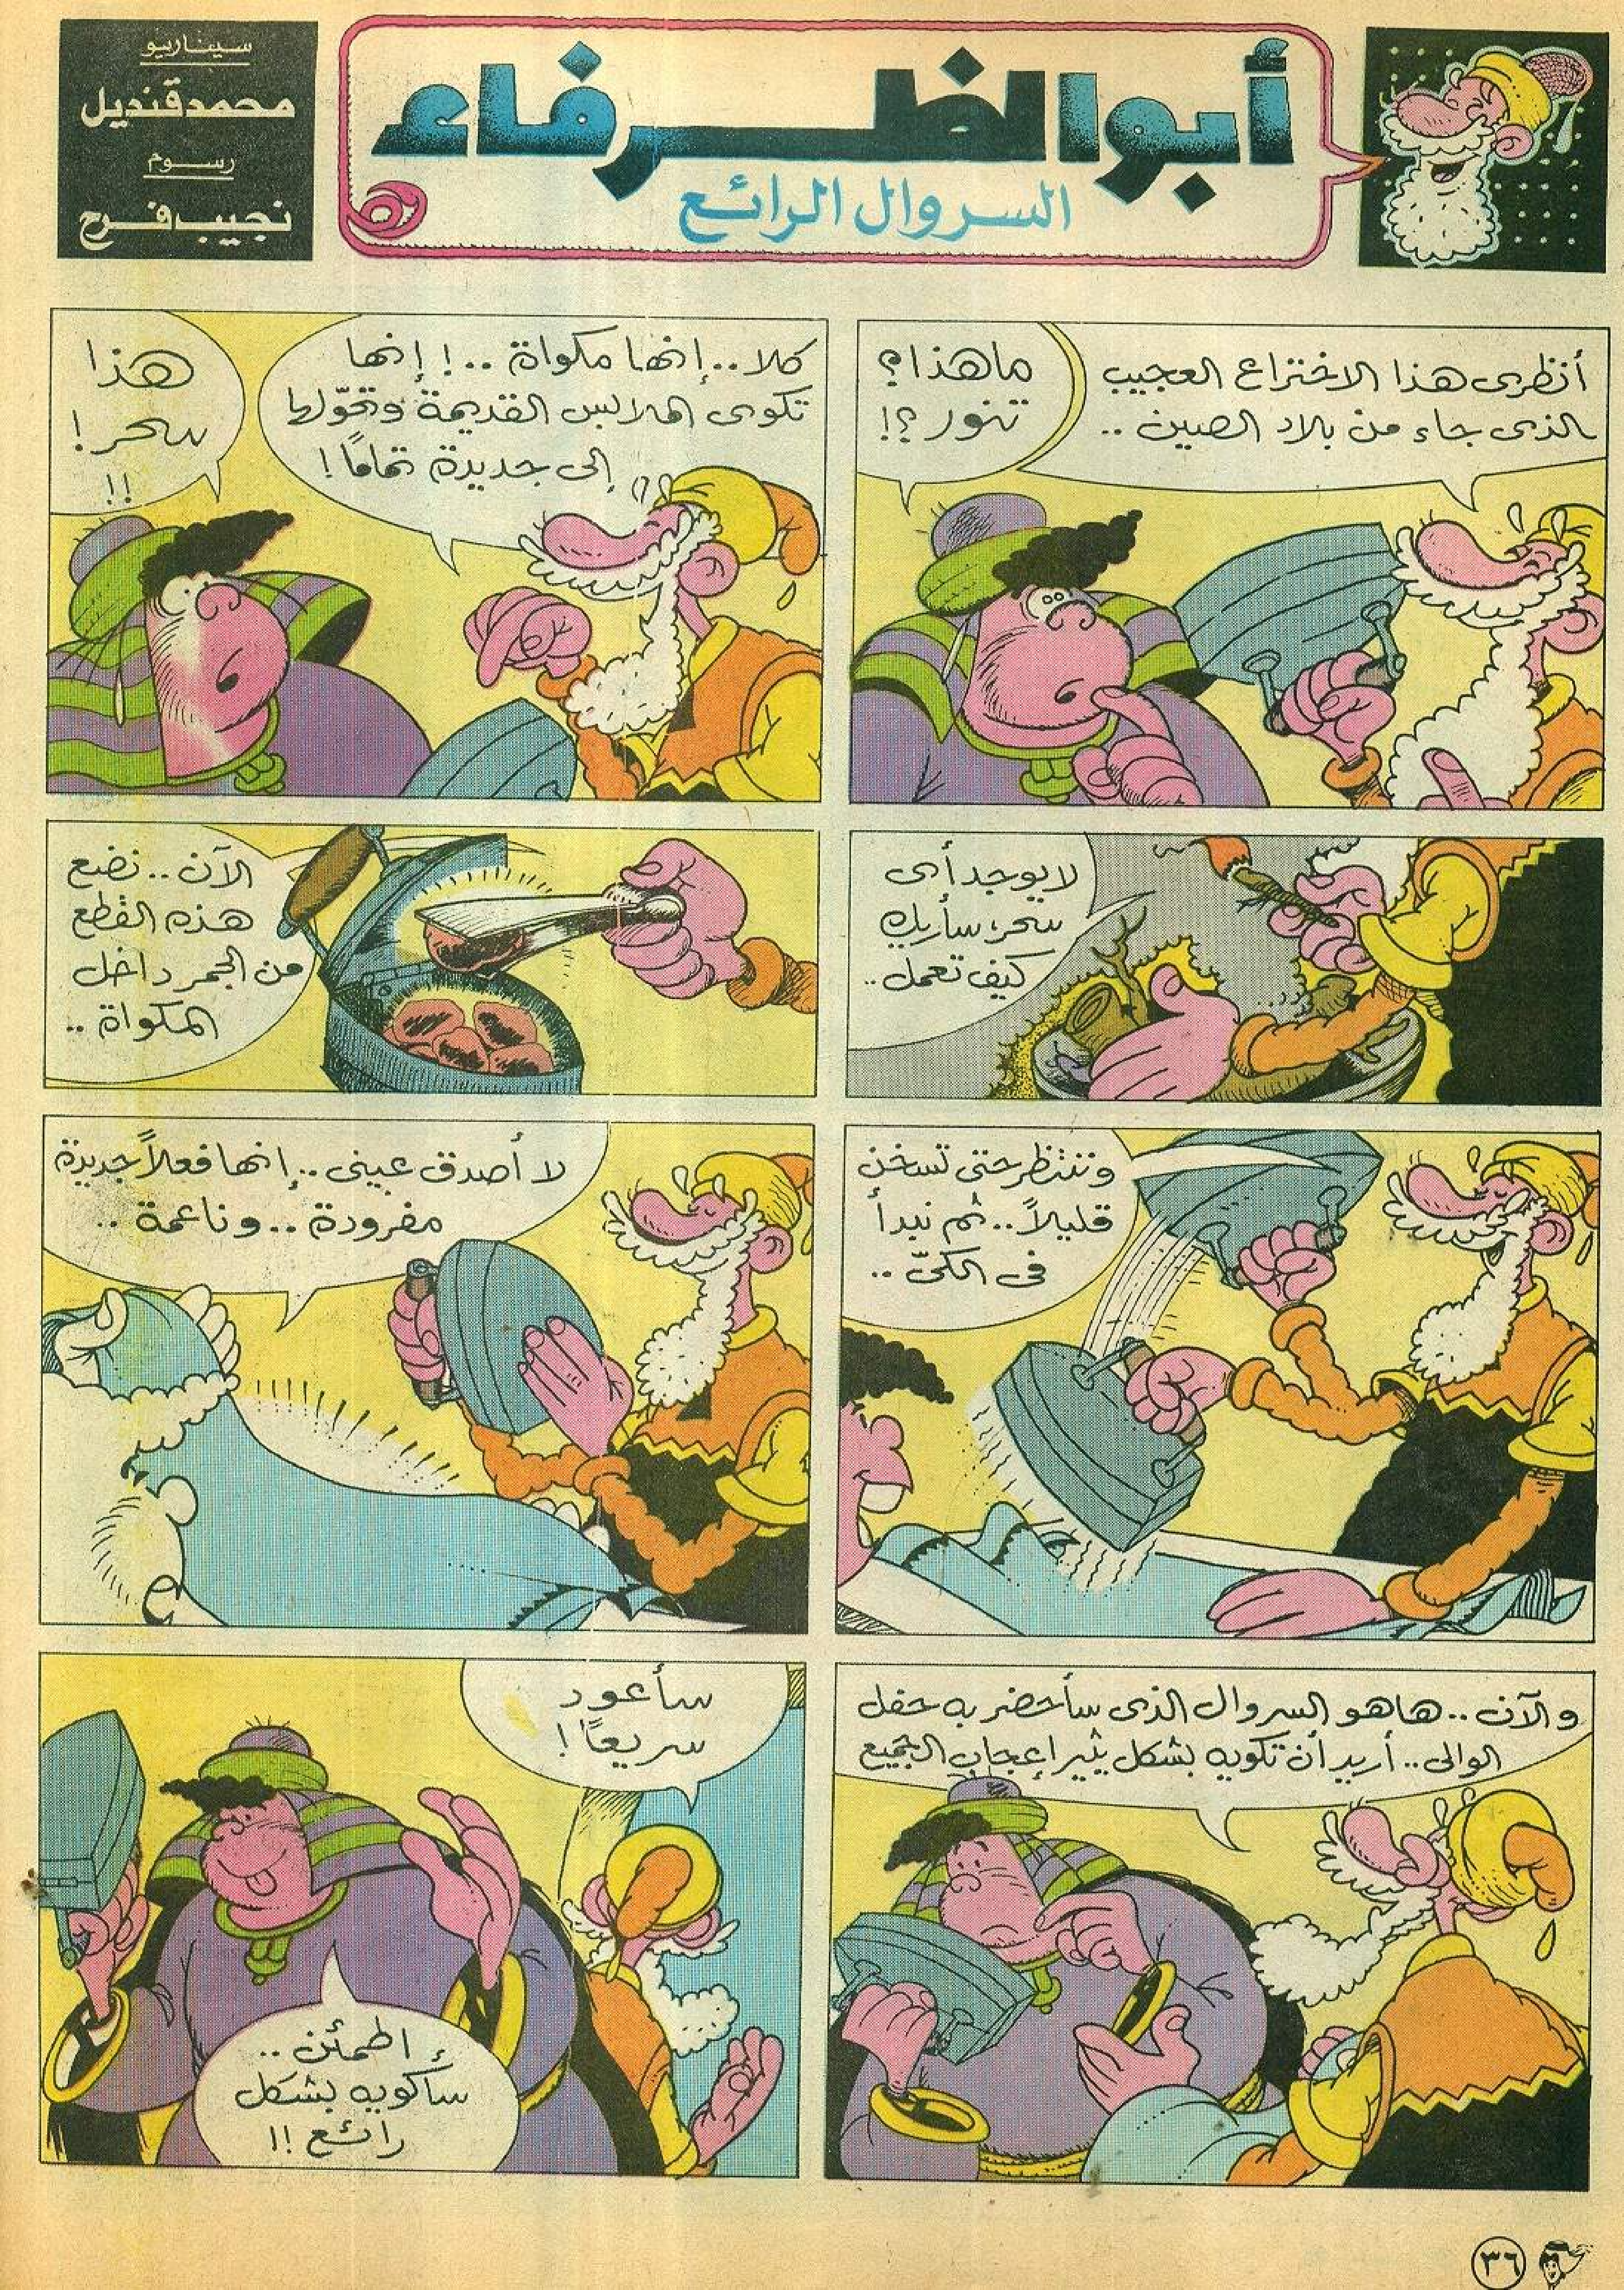 أبو الظرفاء
السروال الرائع
سيناريو
محمد قنديل
رسوم
نجيب فرح
أنظرى هذا الاختراع العجيب
الذى جاء من بلاد الصين ..
ما هذا؟
تنور ؟!
كلا .. إنها مكواة .. ! إنها
تكوى الملابس القديمة وتحوّلها
إلى جديدة تمامًا !
هذا
سحر !
!!
لا يوجد أى
سحر، سأريك
كيف تعمل ..
الآن .. نضع
هذه القطع
من الجمر داخل
المكواة ..
وننتظر حتى تسخن
قليلاً .. ثم نبدأ
فى الكىّ ..
لا أصدق عينى .. إنها فعلاً جديدة
مفرودة .. وناعمة ..
والآن .. ها هو السروال الذى سأحضر به حفل
الوالى .. أريد أن تكويه بشكل يثير إعجاب الجميع
سأعود
سريعًا !
اطمئن ..
سأكويه بشكل
رائع !!
٣٦